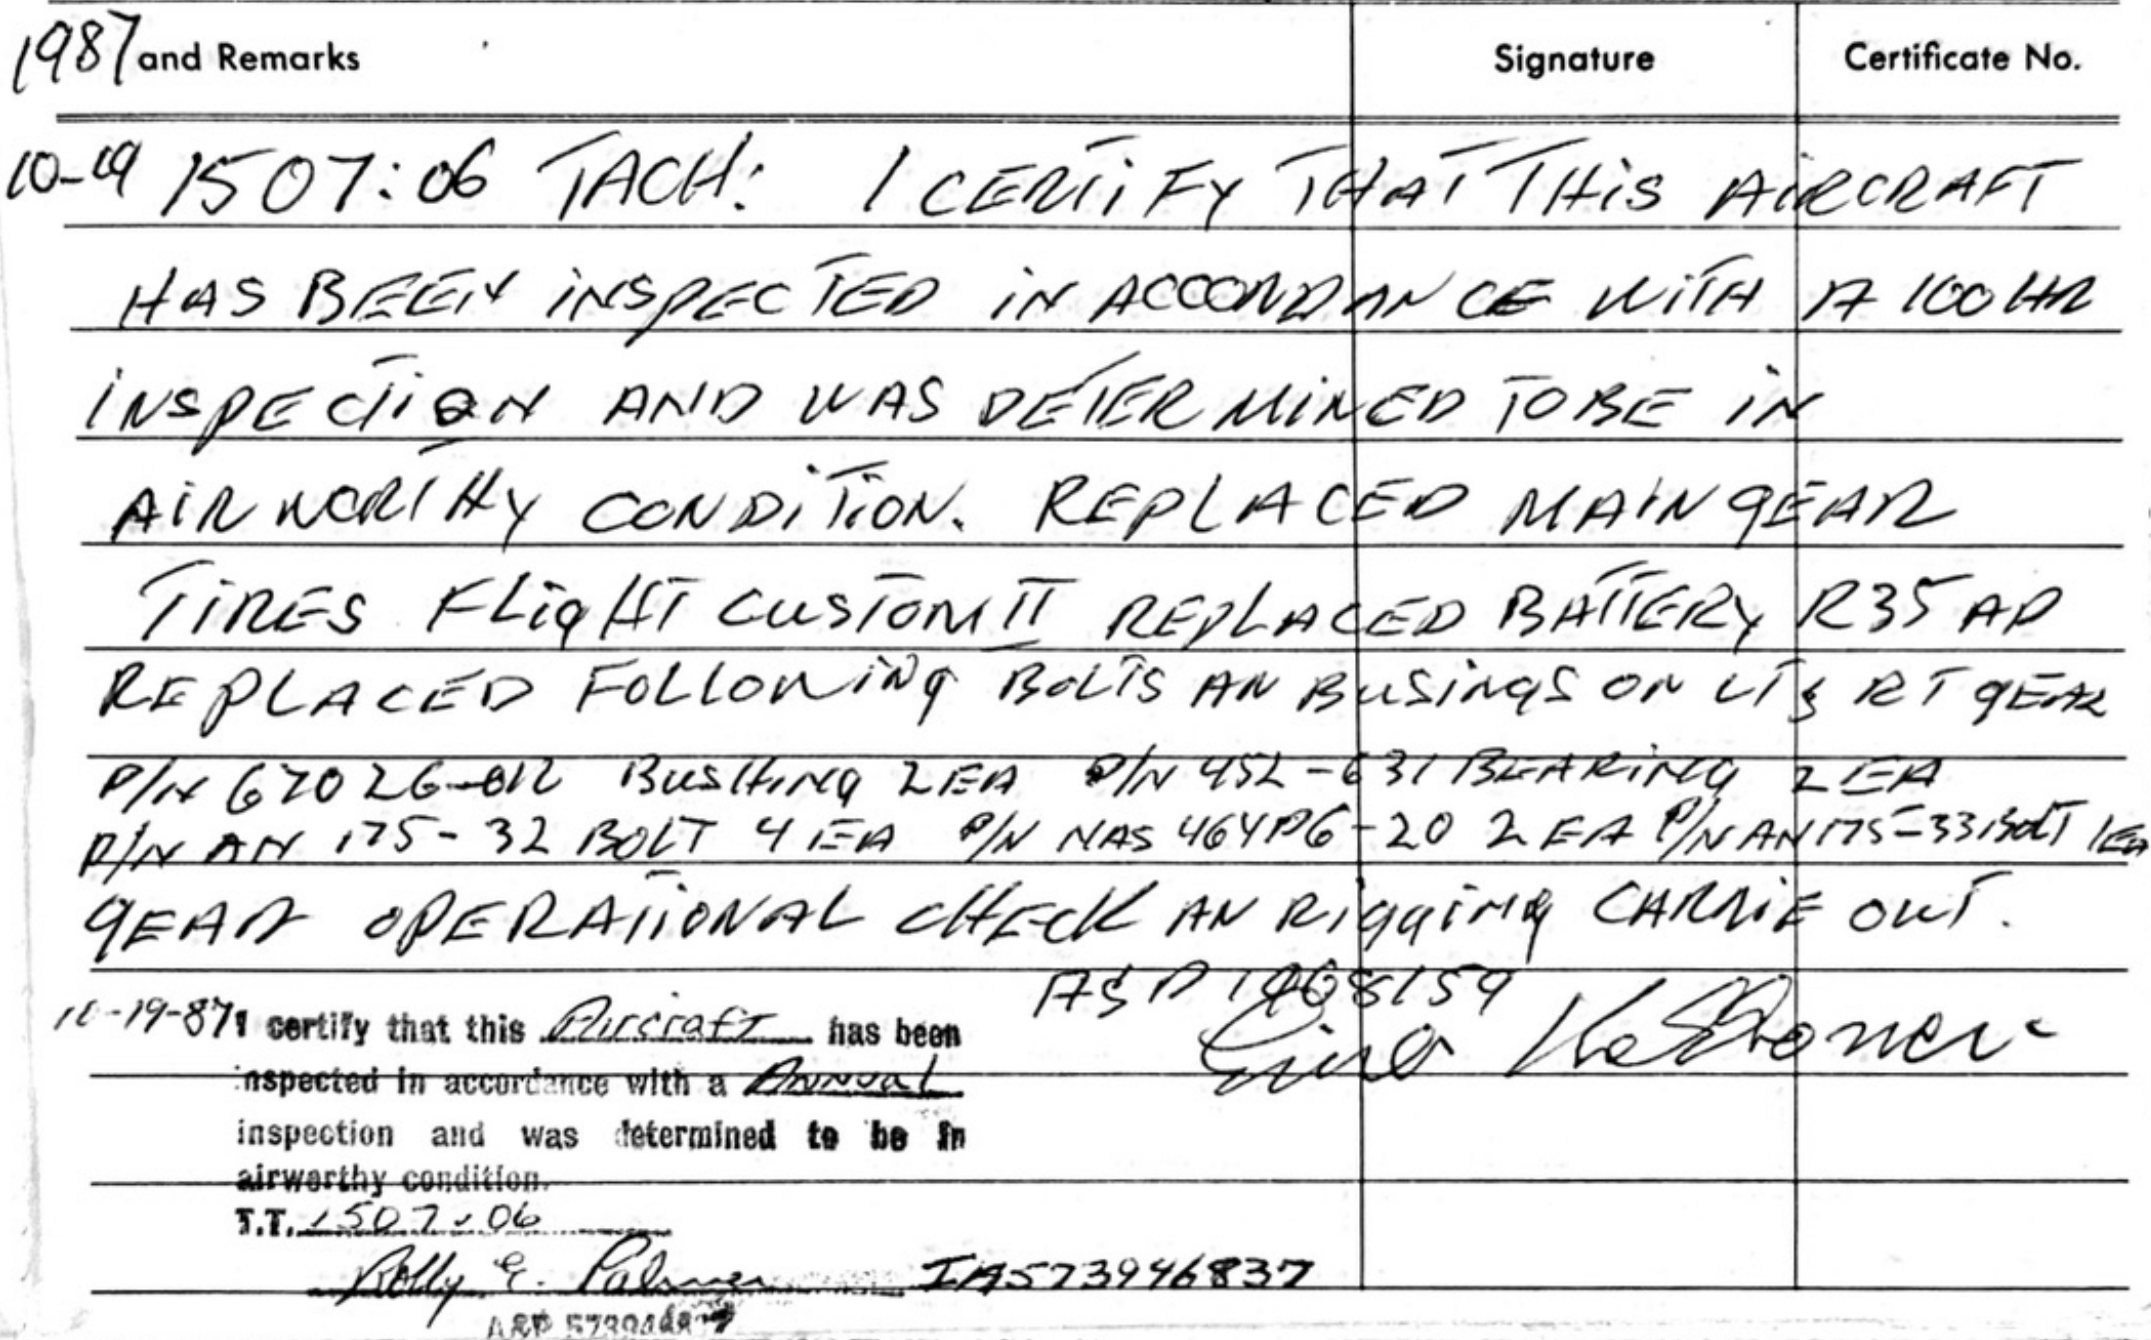 1987 and Remarks Signature Certificate No.
10-19 1507:06 TACH: I CERTIFY THAT THIS AIRCRAFT
HAS BEEN INSPECTED IN ACCORDANCE WITH A 100 HR
INSPECTION AND WAS DETERMINED TO BE IN
AIRWORTHY CONDITION. REPLACED MAIN GEAR
TIRES FLIGHT CUSTOM II REPLACED BATTERY R35 AP
REPLACED FOLLOWING BOLTS AN BUSINGS ON LT & RT GEAR
P/N 67026-012 BUSHING 2 EA P/N 452-631 BEARING 2 EA
P/N AN 175-32 BOLT 4 EA P/N NAS 464P6-20 2 EA P/N AN175-33 BOLT 1EA
GEAR OPERATIONAL CHECK AN RIGGING CARRIE OUT.
A&P
10-19-87 I certify that this Aircraft has been
inspected in accordance with a Annual
inspection and was determined to be in
airworthy condition.
T.T. 1507.06
Rolly E. Palmer IA573946837
A&P